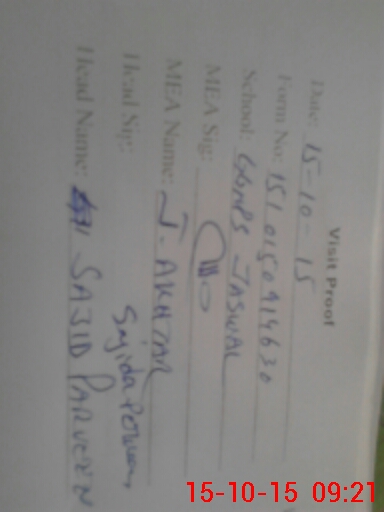 Visit Proof
Date: 15-10-15
Form No: 1510150914630
School: GGMPS JASWAL
MEA Sig:
MEA Name: J. AKHTAR
Head Sig: Sajida Perveen,
Head Name: SAJID PARVEEN
15-10-15 09:21